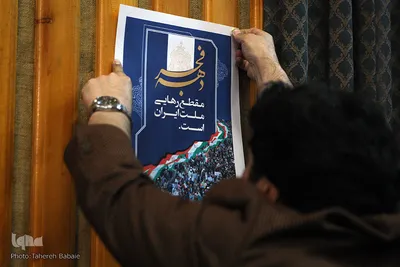 دهه
فجر
مقطع رهایی
ملت ایران
است.
iqna
Photo: Tahereh Babaie